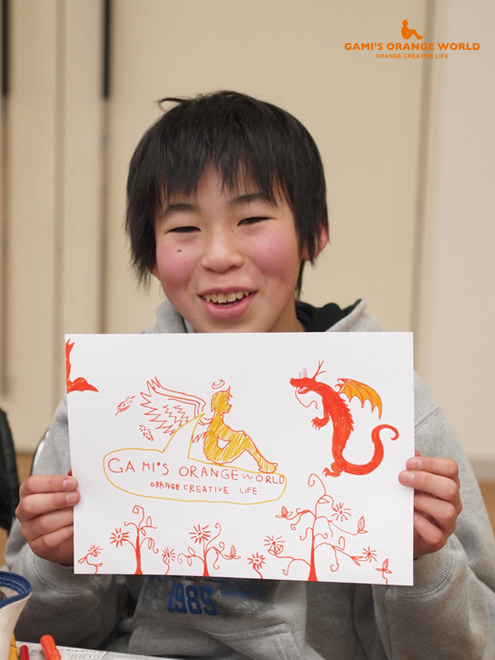 GAMI'S ORANGE WORLD
ORANGE CREATIVE LIFE
GAMI'S ORANGEWORLD
ORANGE CREATIVE LIFE
1985